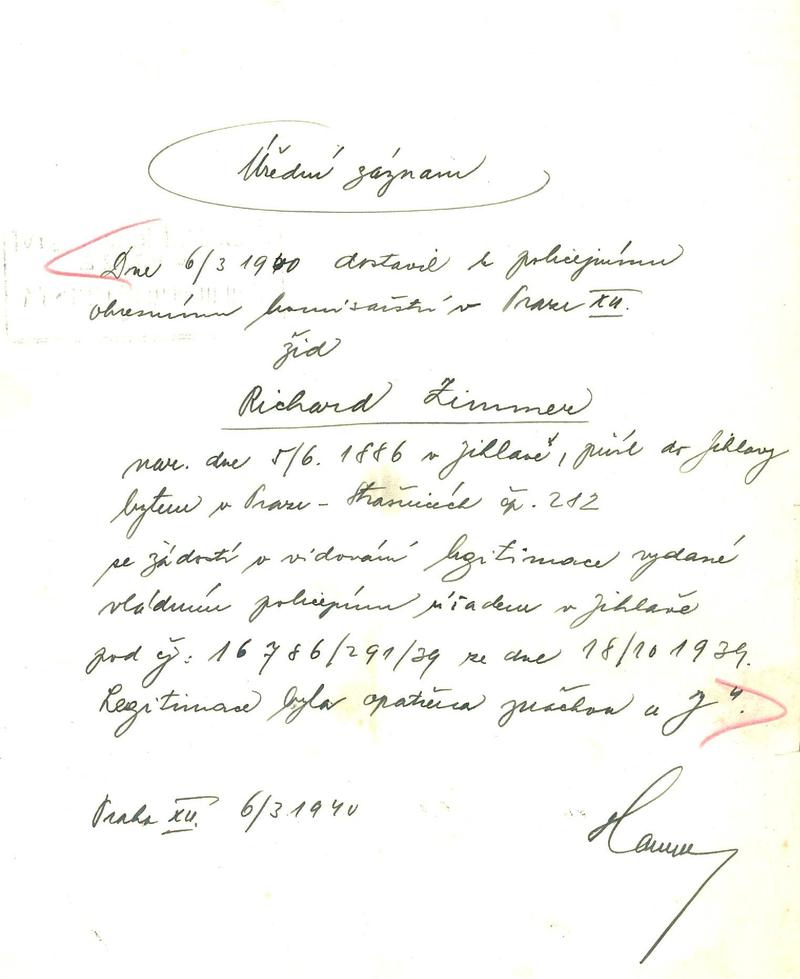 Úřední záznam
Dne 6/3 1940 dostavil k policejnímu
okresnímu komisařství v Praze XII.
žid
Richard Zimmer
nar. dne 5/6. 1886 v Jihlavě, přísl. do Jihlavy
bytem v Praze - Strašnicích čp. 212
se žádostí o vidování legitimace vydané
vládním policejním úřadem v Jihlavě
pod čj: 16786/291/39 ze dne 18/10 1939.
Legitimace byla opatřena značkou „J“.
Praha XII. 6/3 1940